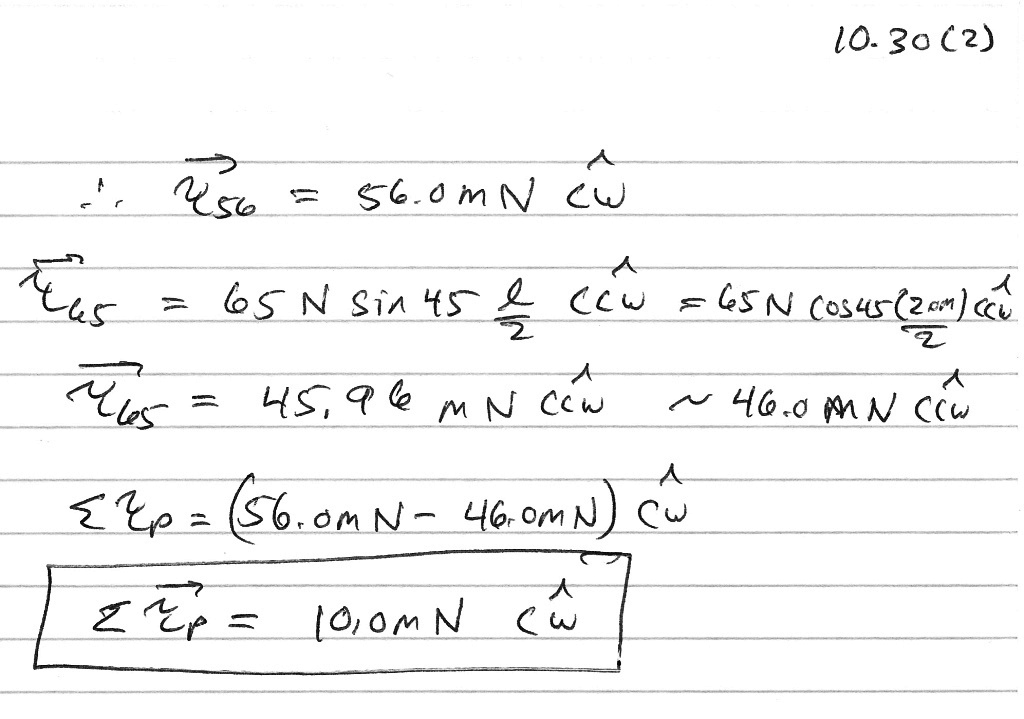 10.30(2)
∴ τ⃗56 = 56.0mN cŵ
τ⃗65 = 65N sin45 l/2 ccŵ = 65N cos45(2.0m)/2 ccŵ
τ⃗65 = 45.96 mN ccŵ ~ 46.0mN ccŵ
Στp = (56.0mN - 46.0mN) cŵ
Στ⃗p = 10.0mN cŵ